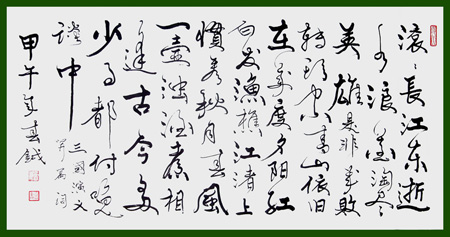 滚〻長江东逝
水浪花淘尽
英雄是非成敗
转头空青山依旧
在几度夕阳红
白发漁樵江渚上
慣看秋月春風
一壶浊酒喜相
逢古今多
少事都付笑
谈中
三國演义
甲午年春